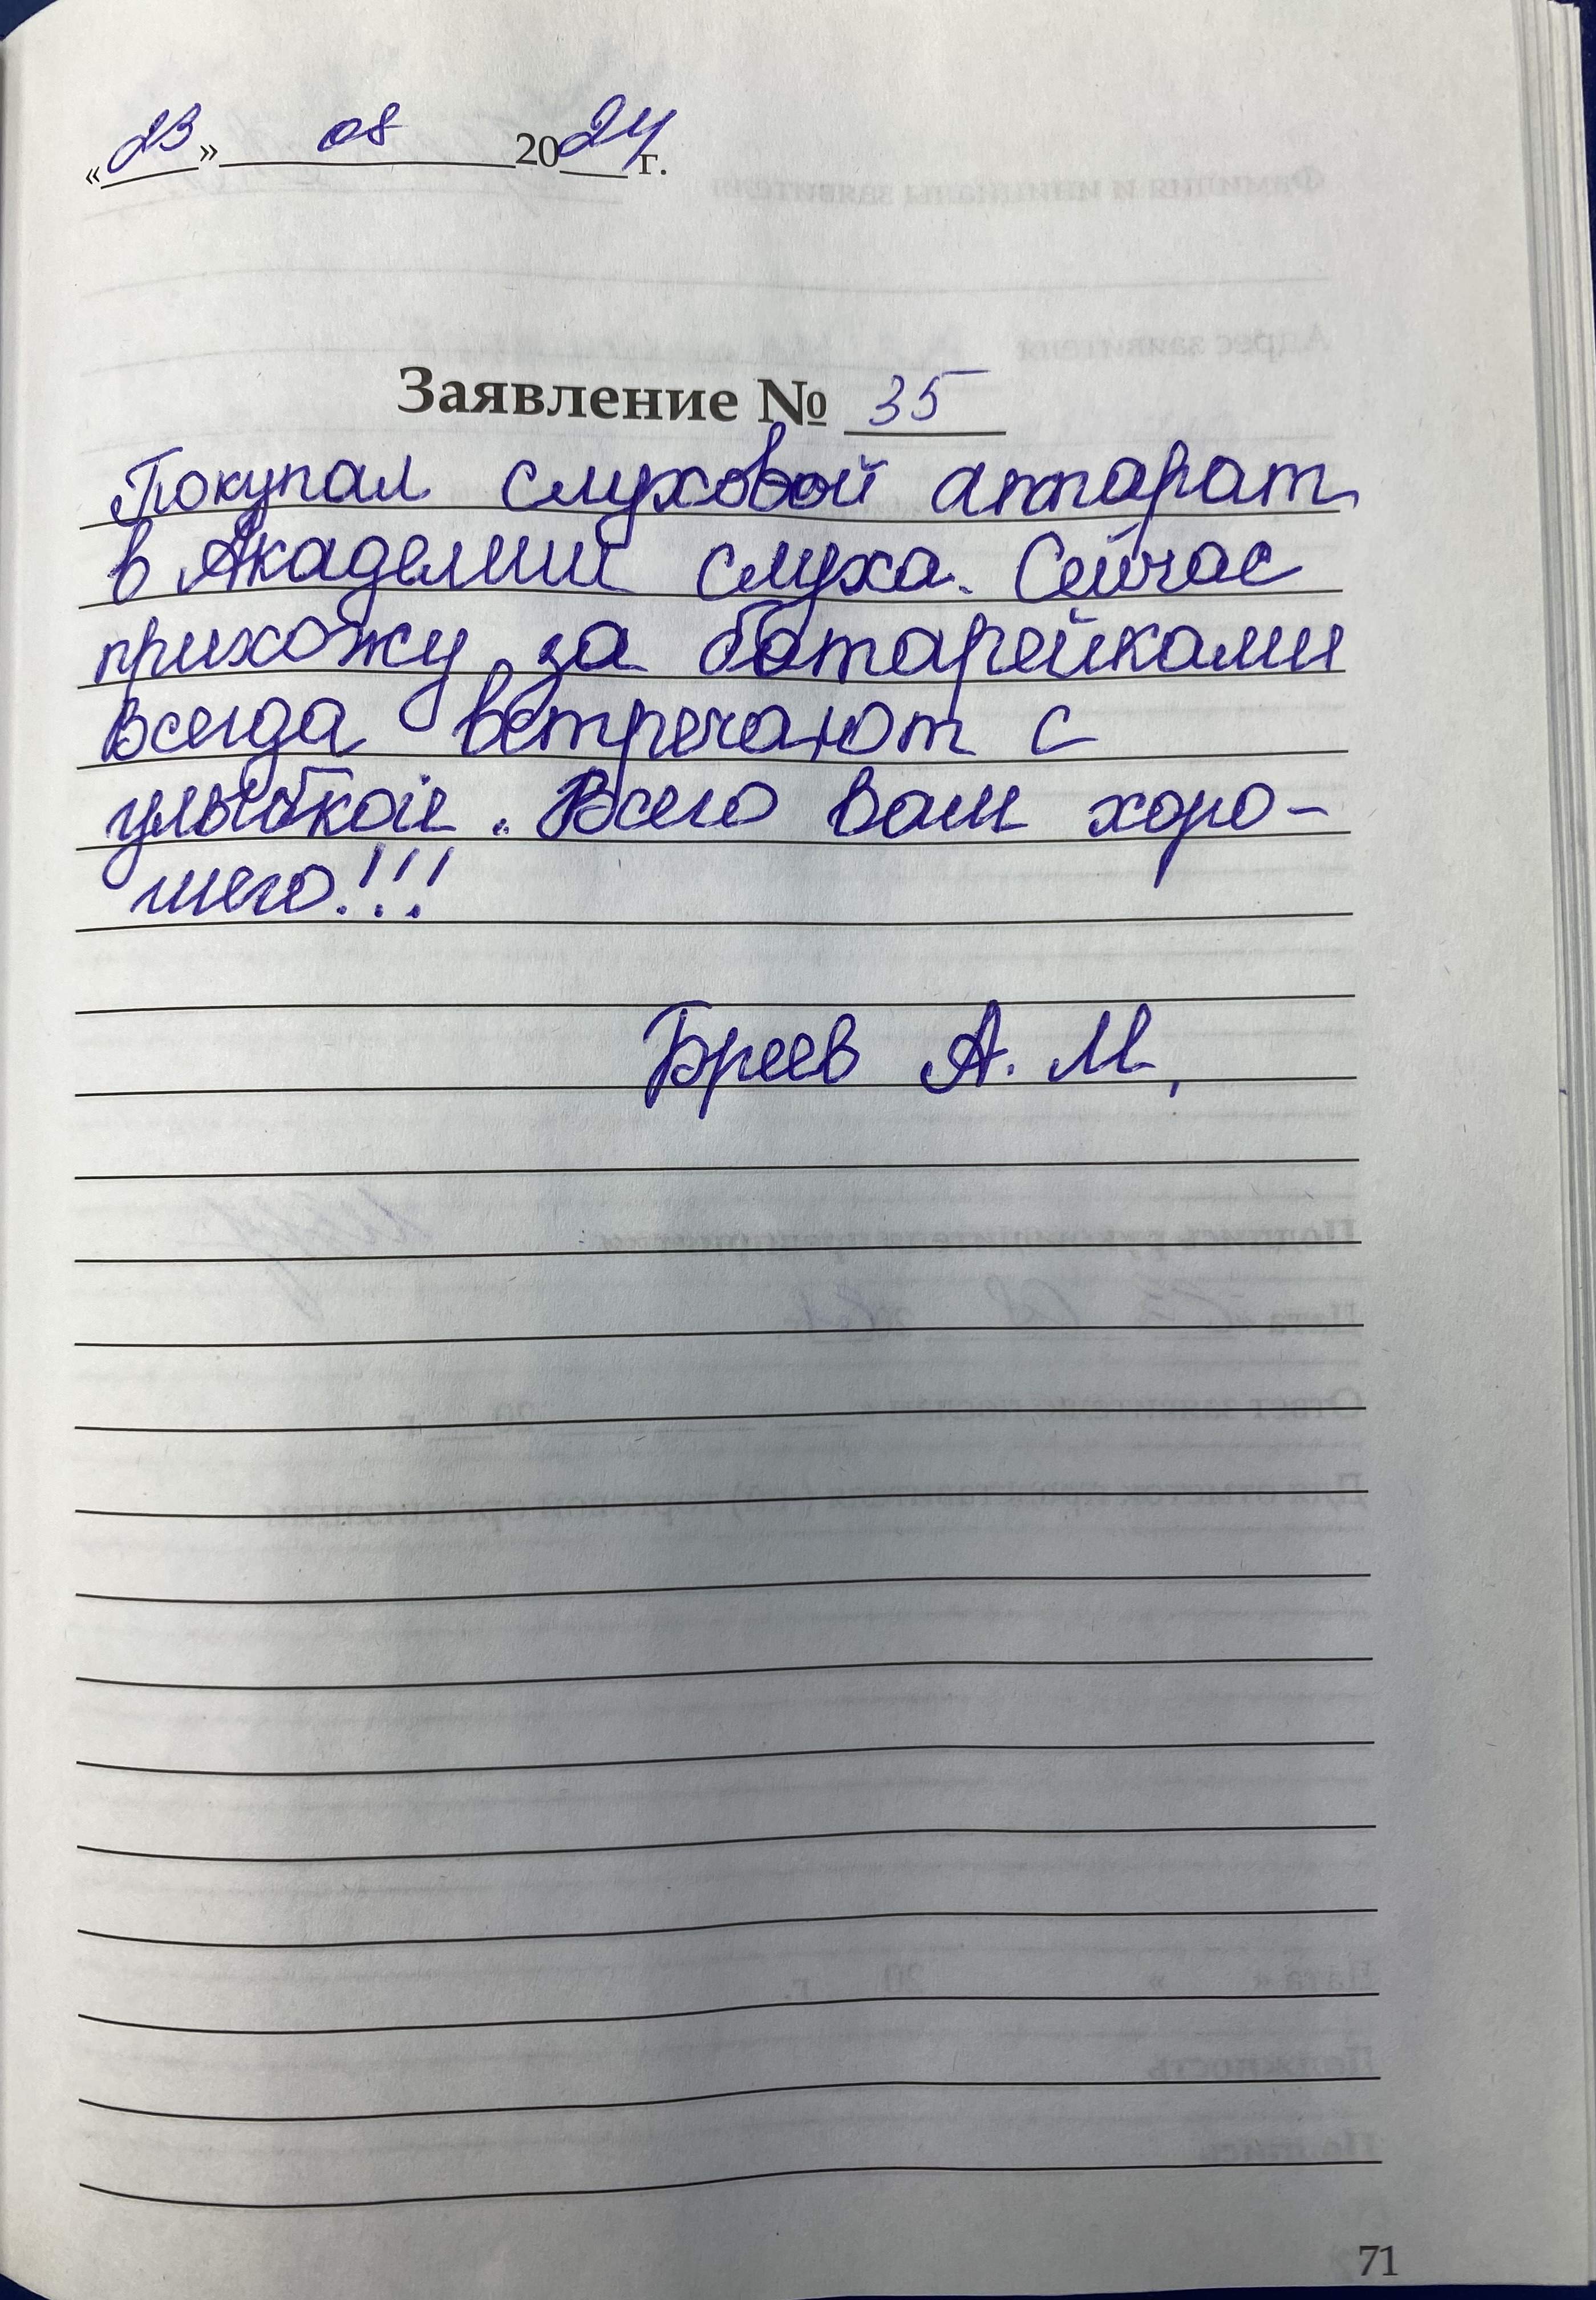 «23» 08 2024 г.
Заявление № 35
Покупал слуховой аппарат
в Академии слуха. Сейчас
прихожу за батарейками
всегда встречают с
улыбкой. Всего вам хоро-
шего!!!
Бреев А. М.
71